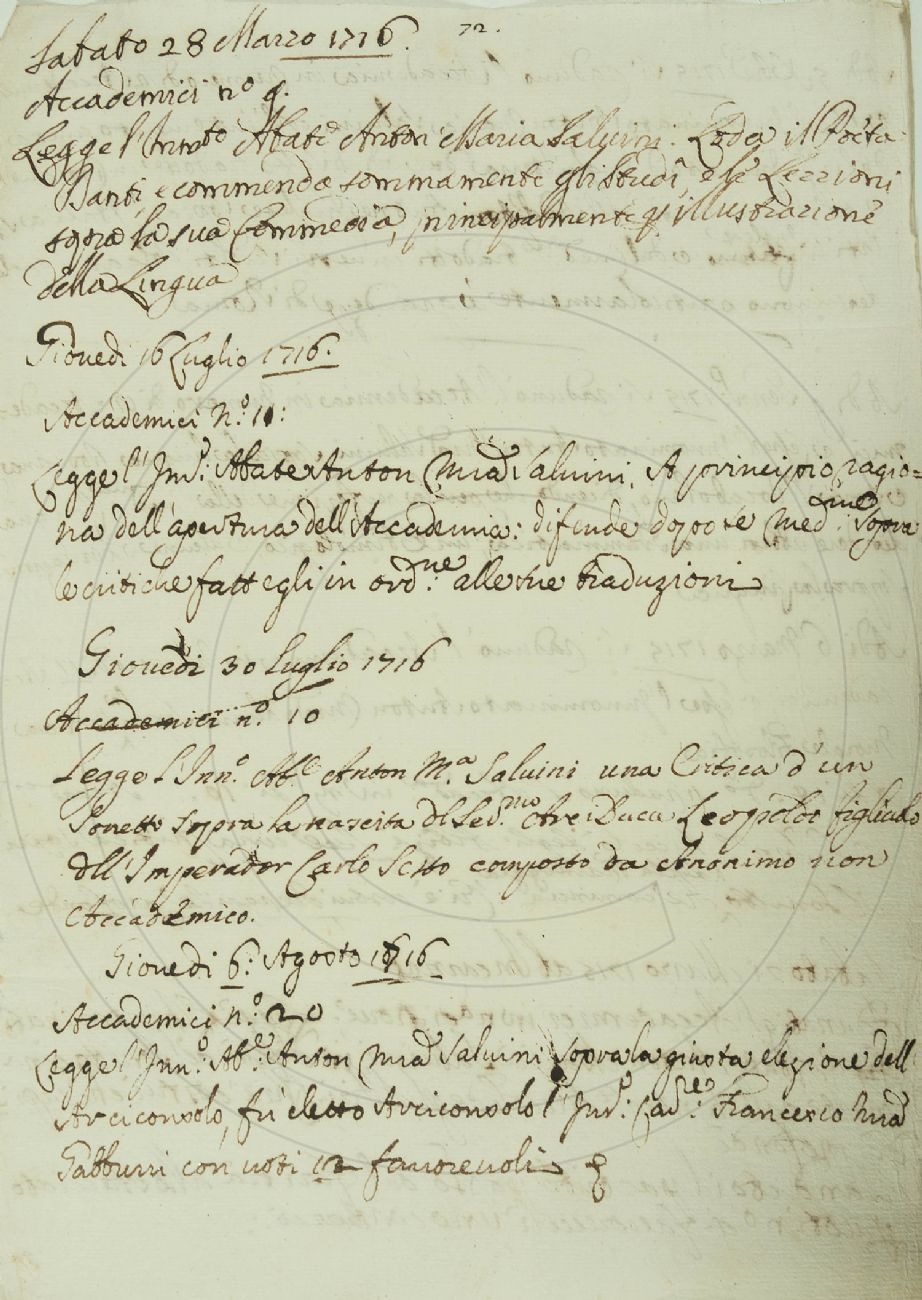 72.
Sabato 28 Marzo 1716.
Accademici nº 9.
Legge l'Innto Abate Anton Maria Salvini. Loda il Poeta
Danti, e commenda sommamente gli Studi, e le Lezzioni
sopra la sua Commedia, principalmente p illustrazione
della Lingua
Giovedi 16 Luglio 1716.
Accademici N.º 11:
Legge l'Inno: Abate Anton Mia Salvini. A principio ragio=
na dell'apertura dell'Accademia: difende dopo se Medmo: sopra
le critiche fattegli in ordne: alle sue traduzioni
Giovedi 30 Luglio 1716
Accademici nº. 10
Legge l'Innº. Abe Anton Ma Salvini una Critica d'un
Sonetto sopra la nascita dl Sermo Arciduca Leopoldo figliuolo
dll'Imperador Carlo Sesto composto da Anonimo non
Accademico.
Giovedi 6: Agosto 1716
Accademici n.º 20
Legge l'Inno: Abe: Anton Mia Salvini sopra la giusta elezione dell
Arciconsolo, fù eletto Arciconsolo l'Inno: Cavre: Francesco Mia
Gabburri con voti 12 favorevoli